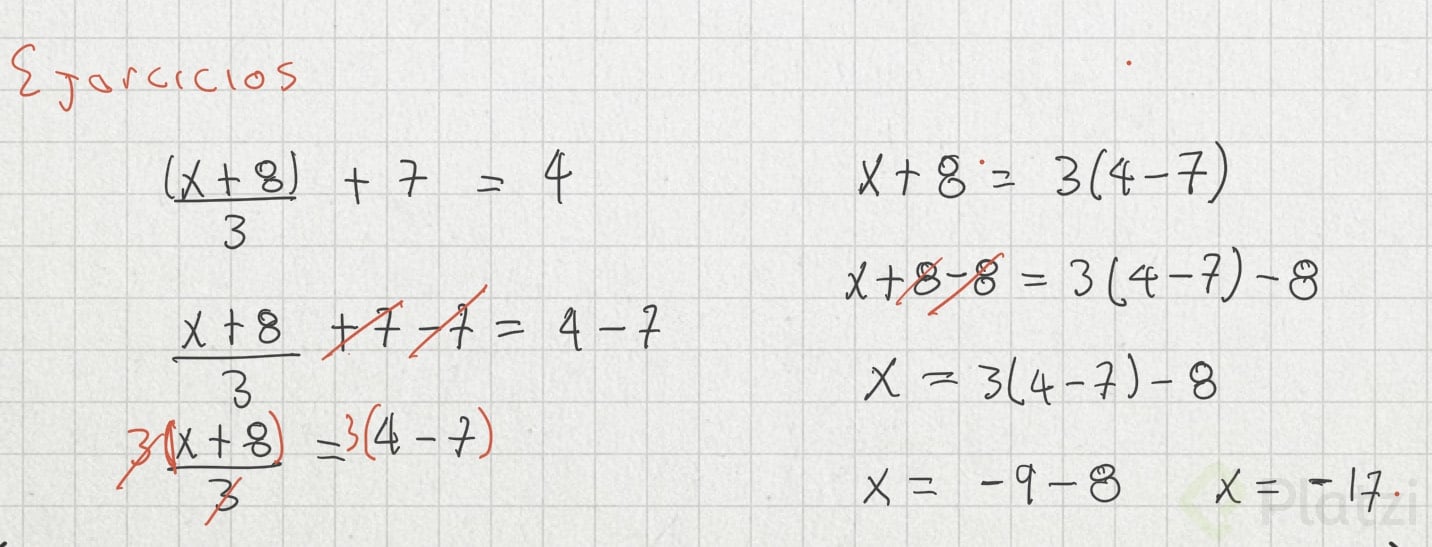 Ejercicios
(x+8)/3 + 7 = 4
x+8/3 +7 -7 = 4 - 7
3(x+8)/3 = 3(4 - 7)
x + 8 = 3(4-7)
x+8-8 = 3(4-7)-8
x = 3(4-7)-8
x = -9-8 x = -17.
Platzi